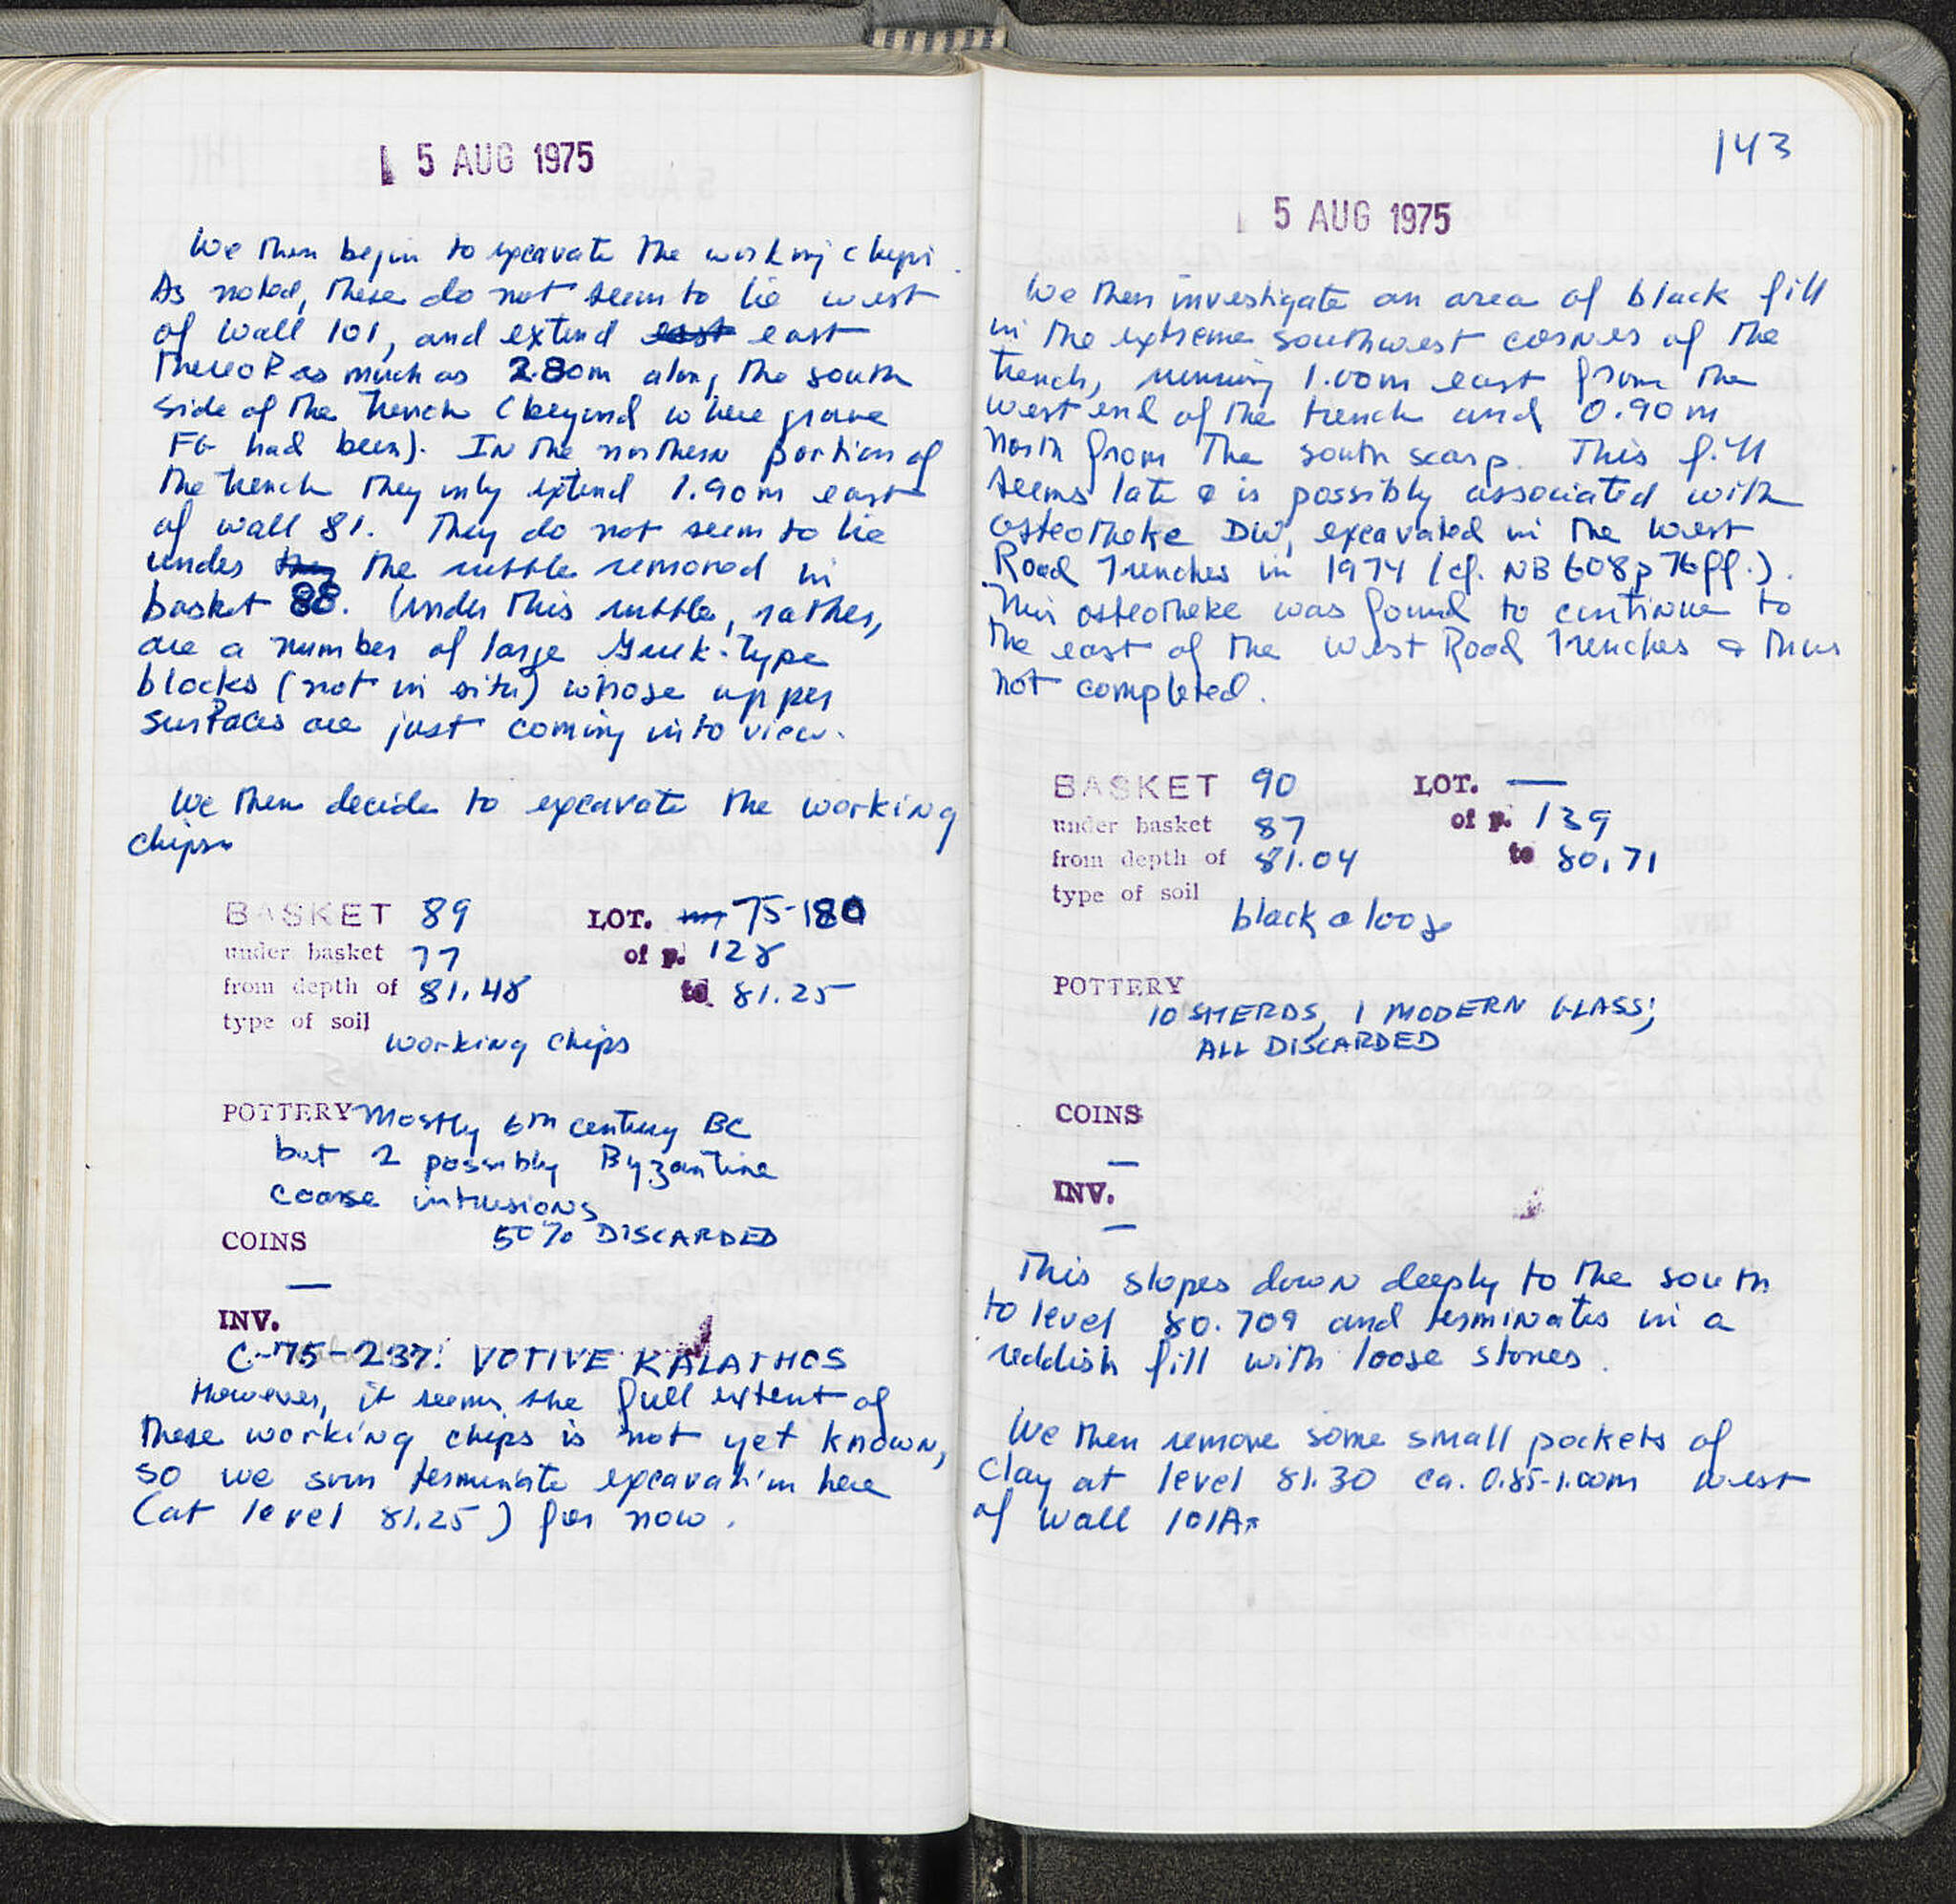 5 AUG 1975
We then begin to excavate the working chips.
As noted, these do not seem to lie west
of wall 101, and extend east east
thereof as much as 2.80m along the south
side of the trench (beyond where grave
FG had been). In the northern portion of
the trench they only extend 1.90m east
of wall 81. They do not seem to lie
under they the rubble removed in
basket 88. Under this rubble, rather,
are a number of large Greek-type
blocks (not in situ) whose upper
surfaces are just coming into view.
We then decide to excavate the working
chips.
BASKET 89 LOT. 75-180
under basket 77 of p. 128
from depth of 81.48 to 81.25
type of soil
working chips
POTTERY Mostly 6th century BC
but 2 possibly Byzantine
coarse intrusions
50% DISCARDED
COINS
—
INV.
C-75-237: VOTIVE KALATHOS
However, it seems the full extent of
these working chips is not yet known,
so we soon terminate excavation here
(at level 81.25) for now.
143
5 AUG 1975
We then investigate an area of black fill
in the extreme southwest corner of the
trench, running 1.00m east from the
west end of the trench and 0.90m
north from the south scarp. This fill
seems late & is possibly associated with
osteotheke DW, excavated in the West
Road Trenches in 1974 (cf. NB 608 p 76ff.).
This osteotheke was found to continue to
the east of the West Road Trenches & thus
not completed.
BASKET 90 LOT. —
under basket 87 of p. 139
from depth of 81.04 to 80.71
type of soil
black & loose
POTTERY
10 SHERDS, 1 MODERN GLASS;
ALL DISCARDED
COINS
—
INV.
—
This slopes down deeply to the south
to level 80.709 and terminates in a
reddish fill with loose stones.
We then remove some small pockets of
clay at level 81.30 ca. 0.85-1.00m west
of wall 101A.